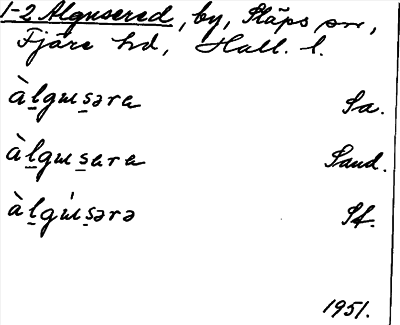 1-2 Älgusered, by, Släps sn,
Fjäre hd, Hall. l.
àlgusəra Sa.
àlgusara Sand.
àlgúsərə Sf.
1951.